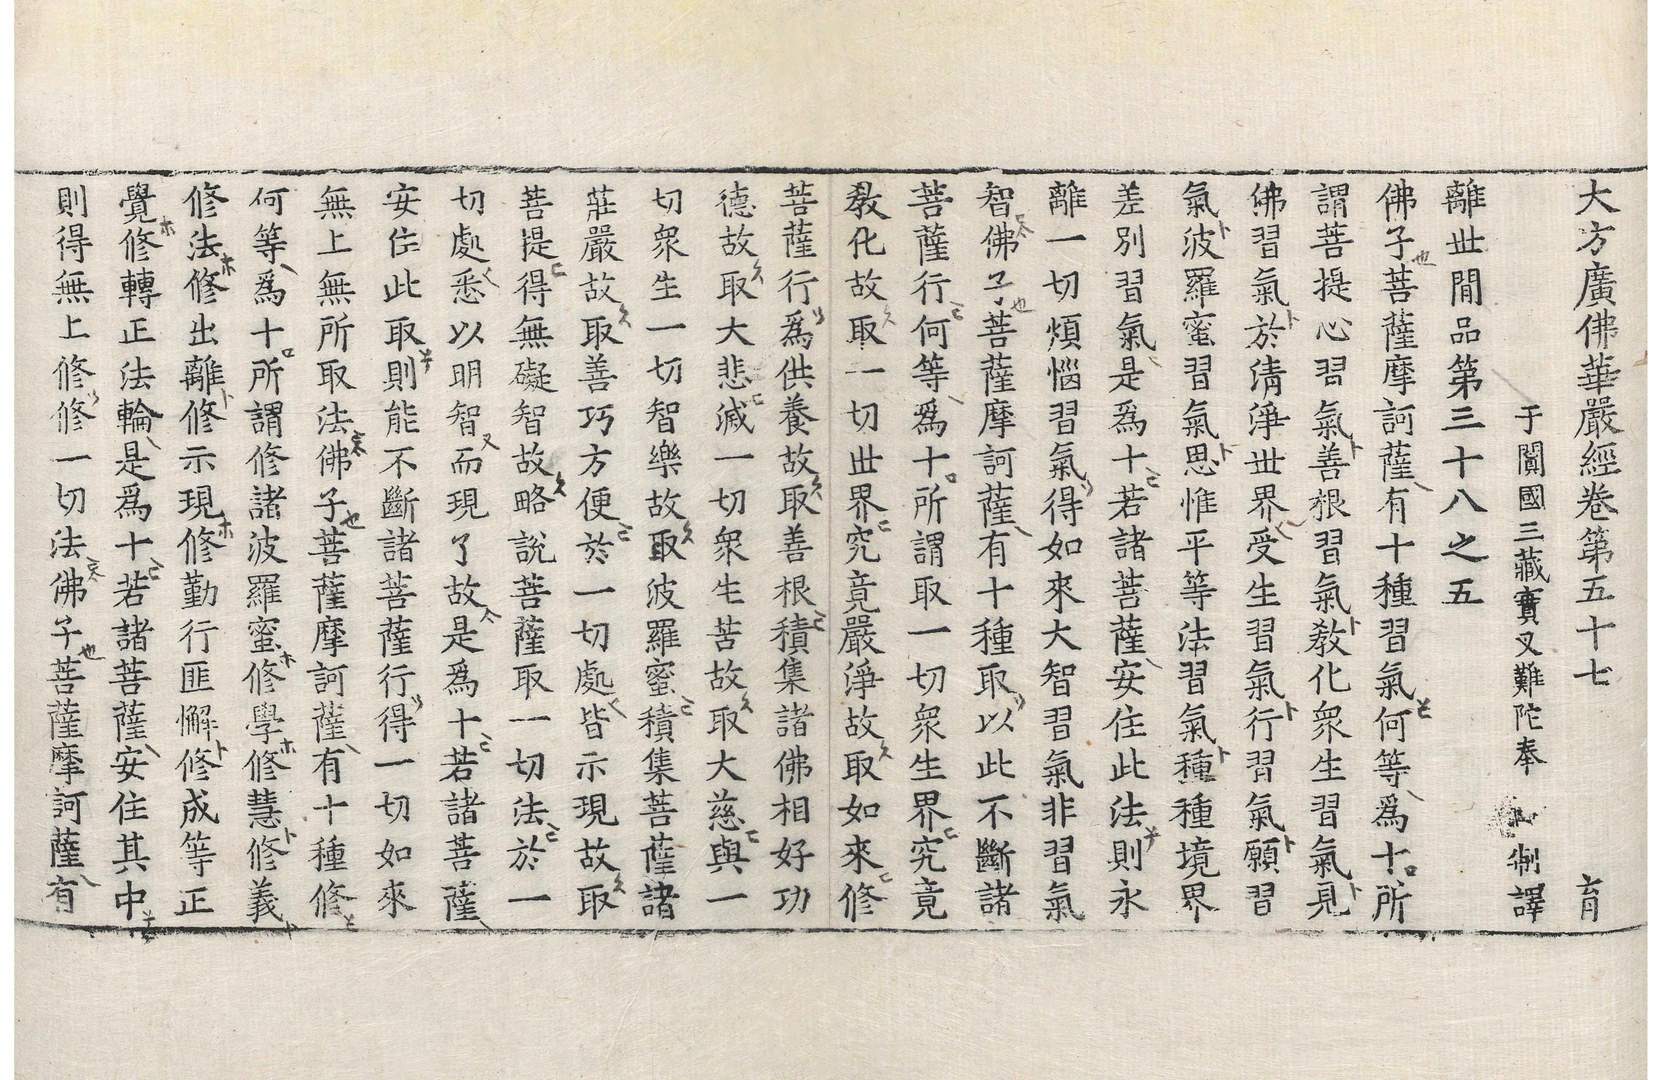 大方廣佛華嚴經卷第五十七 育
于闐國三藏實叉難陀奉 制譯
離世閒品第三十八之五
佛子菩薩摩訶薩有十種習氣何等爲十所
謂菩提心習氣善根習氣敎化衆生習氣見
佛習氣於淸淨世界受生習氣行習氣願習
氣波羅蜜習氣思惟平等法習氣種種境界
差別習氣是爲十若諸菩薩安住此法則永
離一切煩惱習氣得如來大智習氣非習氣
智佛子菩薩摩訶薩有十種取以此不斷諸
菩薩行何等爲十所謂取一切衆生界究竟
敎化故取一切世界究竟嚴淨故取如來修
菩薩行爲供養故取善根積集諸佛相好功
德故取大悲滅一切衆生苦故取大慈與一
切衆生一切智樂故取波羅蜜積集菩薩諸
莊嚴故取善巧方便於一切處皆示現故取
菩提得無礙智故略說菩薩取一切法於一
切處悉以明智而現了故是爲十若諸菩薩
安住此取則能不斷諸菩薩行得一切如來
無上無所取法佛子菩薩摩訶薩有十種修
何等爲十所謂修諸波羅蜜修學修慧修義
修法修出離修示現修勤行匪懈修成等正
覺修轉正法輪是爲十若諸菩薩安住其中
則得無上修修一切法佛子菩薩摩訶薩有